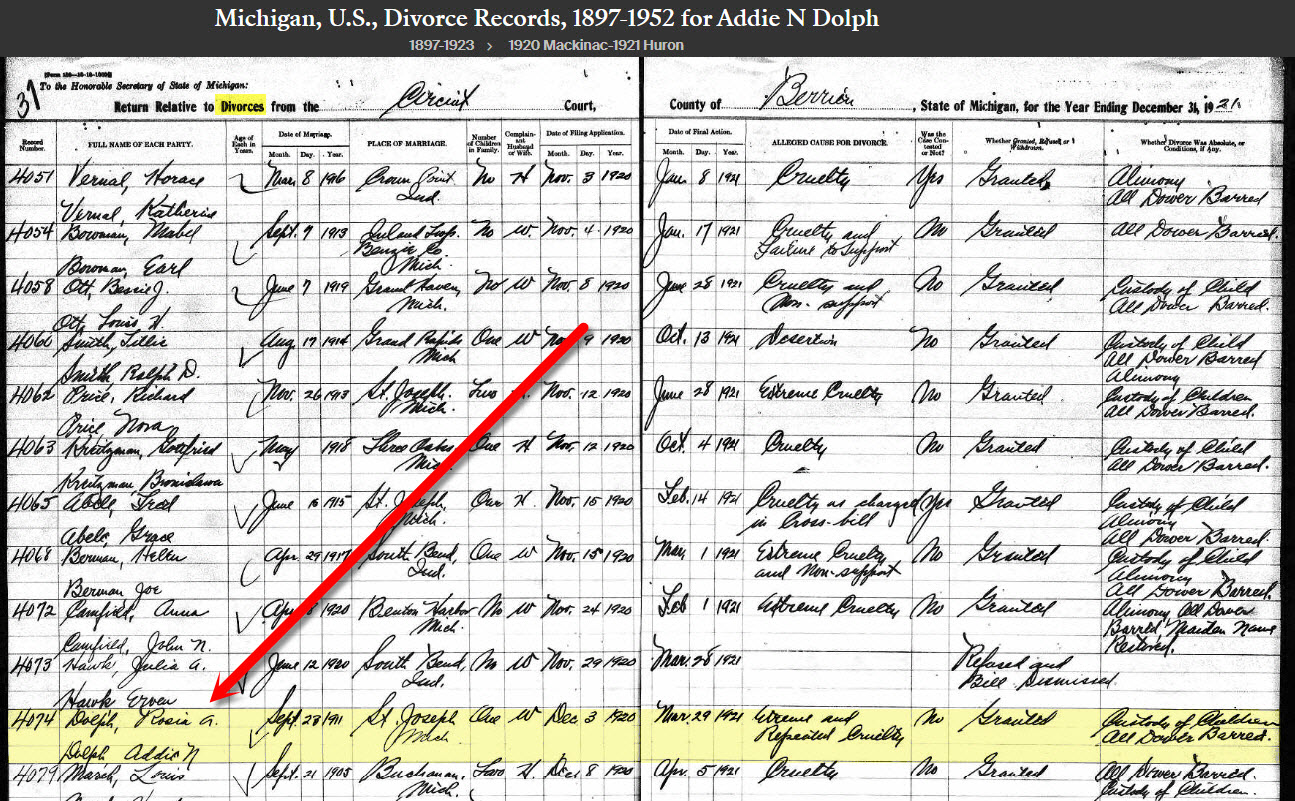 Michigan, U.S., Divorce Records, 1897-1952 for Addie N Dolph
1897-1923 > 1920 Mackinac-1921 Huron
31
To the Honorable Secretary of State of Michigan:
Return Relative to Divorces from the Circuit Court, County of Berrien, State of Michigan, for the Year Ending December 31, 1921
Record Number. FULL NAME OF EACH PARTY. Age of Each in Years. Date of Marriage. Month. Day. Year. PLACE OF MARRIAGE. Number of Children in Family. Complainant Husband or Wife. Date of Filing Application. Month. Day. Year. Date of Final Action. Month. Day. Year. ALLEGED CAUSE FOR DIVORCE. Was the Case Contested or Not? Whether Granted, Refused or Withdrawn. Whether Divorce Was Absolute, or Conditions, if Any.
4051 Vernal, Horace Mar. 8 1916 Crown Point No H Nov. 3 1920 Jan. 8 1921 Cruelty Yes Granted Alimony
Ind. All Dower Barred
Vernal, Katherine
4054 Bowman, Mabel Sept. 7 1913 Inland Twp. No W Nov. 4 1920 Jan. 17 1921 Cruelty and No Granted All Dower Barred.
Benzie Co. Failure to Support
Bowman, Earl Mich.
4058 Ott, Bessie J. June 7 1919 Grand Haven, No W Nov. 8 1920 June 28 1921 Cruelty and No Granted Custody of Child
Mich. Non-support All Dower Barred.
Ott, Louis H.
4060 Smith, Tillie Aug. 17 1914 Grand Rapids One W Nov. 9 1920 Oct. 13 1921 Desertion No Granted Custody of Child
Mich All Dower Barred
Smith, Ralph D. Alimony
4062 Price, Richard Nov. 26 1913 St. Joseph, Two Nov. 12 1920 June 28 1921 Extreme Cruelty No Granted Custody of Children
Mich. All Dower Barred.
Price, Nora
4063 Kreitzman, Gottfried May 1918 Three Oaks One H Nov. 12 1920 Oct 4 1921 Cruelty No Granted Custody of Child
Mich. All Dower Barred.
Kreitzman Bronislawa
4065 Abele, Fred June 16 1915 St. Joseph, One H. Nov. 15 1920 Feb. 14 1921 Cruelty as charged Yes Granted Custody of Child
Mich. in Cross-bill Alimony
Abele, Grace All Dower Barred.
4068 Berman, Helen Apr. 29 1917 South Bend, One W Nov. 15 1920 Mar. 1 1921 Extreme Cruelty No Granted Custody of Child
Ind. and Non-support Alimony
Berman Joe All Dower Barred.
4072 Camfield, Anna Apr 1920 Benton Harbor No W Nov. 24 1920 Feb 1 1921 Extreme Cruelty No Granted Alimony, All Dower
Mich. Barred Maiden Name
Camfield, John N. Restored.
4073 Hawk, Julia A. June 12 1920 South Bend, No W Nov. 29 1920 Mar. 28 1921 Refused and
Ind. Bill Dismissed.
Hawk Erven
4074 Dolph, Rosia A. Sept. 28 1911 St. Joseph One W Dec 3 1920 Mar. 29 1921 Extreme and No Granted Custody of Children
Mich Repeated Cruelty All Dower Barred.
Dolph Addie N
4079 Marsh, Louis Sept. 21 1905 Buchanan, Two H. Dec 8 1920 Apr. 5 1921 Cruelty No Granted All Dower Barred.
Mich. Custody of Children.